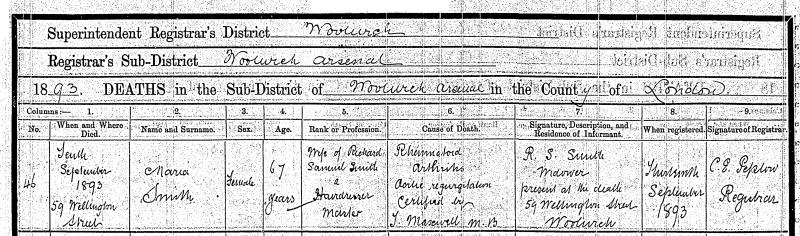 Superintendent Registrar's District Woolwich
Registrar's Sub-District Woolwich Arsenal
1893. DEATHS in the Sub-District of Woolwich Arsenal in the County of London
Columns:— 1. 2. 3. 4. 5. 6. 7. 8. 9.
No. When and Where Died. Name and Surname. Sex. Age. Rank or Profession. Cause of Death. Signature, Description, and Residence of Informant. When registered. Signature of Registrar.
46
Tenth
September
1893
59 Wellington
Street
Maria
Smith
Female
67
years
Wife of Richard
Samuel Smith
a
Hairdresser
Master
Rheumatoid
Arthritis
Aortic regurgitation
Certified by
J. Maxwell M.B
R. S. Smith
Widower
present at the death
59 Wellington Street
Woolwich
Thirteenth
September
1893
Registrar